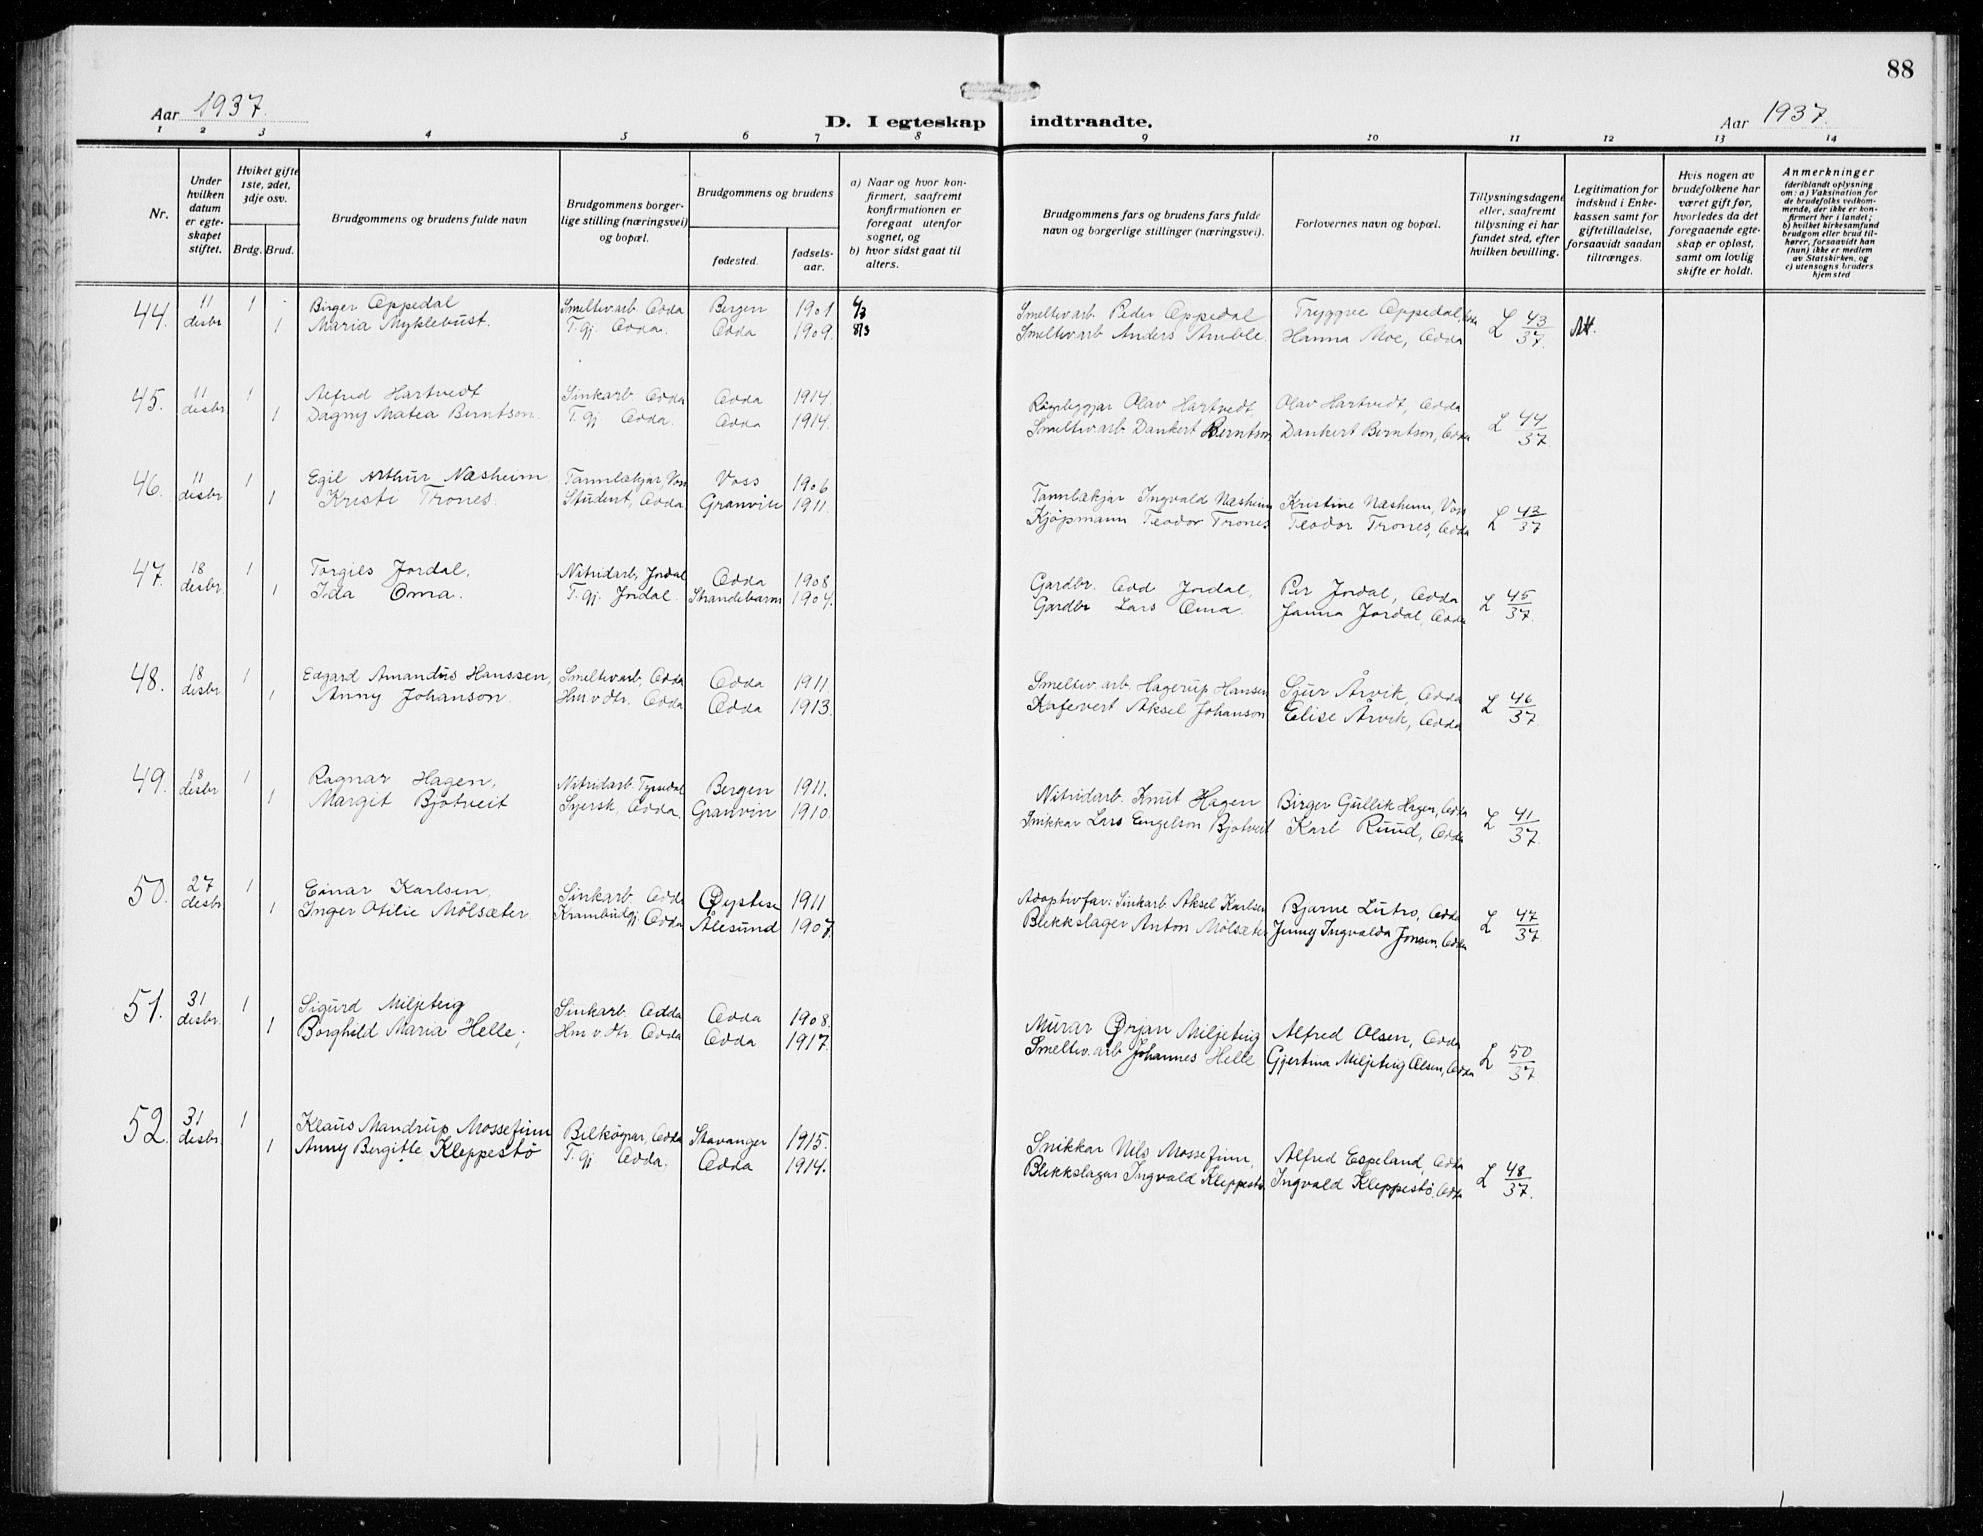 88
Aar 1937.
D. I egteskap indtraadte.
Aar 1937.
1 2 3 4 5 6 7 8 9 10 11 12 13 14
Nr.
Under hvilken datum er egteskapet stiftet.
Hviket gifte 1ste, 2det, 3dje osv.
Brdg. Brud.
Brudgommens og brudens fulde navn
Brudgommens borgerlige stilling (næringsvei) og bopæl.
Brudgommens og brudens
fødested.
fødselsaar.
a) Naar og hvor konfirmert, saafremt konfirmationen er foregaat utenfor sognet, og
b) hvor sidst gaat til alters.
Brudgommens fars og brudens fars fulde navn og borgerlige stillinger (næringsvei).
Forlovernes navn og bopæl.
Tillysningsdagene eller, saafremt tillysning ei har fundet sted, efter hvilken bevilling.
Legitimation for indskud i Enkekassen samt for giftetilladelse, forsaavidt saadan tiltrænges.
Hvis nogen av brudefolkene har været gift før, hvorledes da det foregaaende egteskap er opløst, samt om lovlig skifte er holdt.
Anmerkninger (deriblandt oplysning om: a) Vaksination for de brudefolks vedkommende, der ikke er konfirmert her i landet; b) hvilket kirkesamfund brudgom eller brud tilhører, forsaavidt han (hun) ikke er medlem av Statskirken, og c) utensogns bruders hjemsted
44. 11 desbr 1 Birger Oppedal Smeltev.arb Odda Bergen 1901 Smeltev.arb Peder Oppedal Tryggve Oppedal, Odda L 43/37.
1 Maria Myklebust. T. gj. Odda. Odda 1909. Smeltev.arb Anders Amble. Hanna Moe, Odda
45. 11 desbr 1 Alfred Hartvedt Sinkarb. Odda Odda 1914. Røyrleggjar Olav Hartvedt, Olav Hartvedt, Odda L 44/37
1 Dagny Matea Berntson. T. gj. Odda. Odda 1914. Smeltev.arb Dankert Berntson Dankert Berntson, Odda
46. 11 desbr 1 Egil Arthur Næsheim Tannlækjar, Voss Voss 1906 Tannlækjar Ingvald Næsheim Kristine Næsheim, Voss L 42/37
1 Kristi Trones. Student, Odda Granvin 1911. Kjøpmann Teodor Trones Teodor Trones, Odda
47. 18 desbr. 1 Torgils Jordal, Nitridarb, Jordal Odda 1908. Gardbr. Odd Jordal, Per Jordal, Odda L 45/37.
1 Ida Oma. T. gj. Jordal. Strandebarm 1904. Gardbr Lars Oma. Janna Jordal, Odda
48. 18 desbr 1 Edgard Amandus Hanssen, Smeltev.arb, Odda Odda 1911. Smeltev.arb. Hagerup Hansen Sjur Årvik, Odda L 46/37.
1 Anny Johanson. Hm v. Str. Odda Odda 1913 Kafévert Aksel Johanson Elise Årvik, Odda
49. 18 desbr 1 Ragnar Hagen, Nitridarb. Tyssedal Bergen 1911. Nitridarb. Knut Hagen Birger Gullik Hagen, Odda L 41/37.
1 Margit Bjotveit Syersk, Odda. Granvin 1910. Snikkar Lars Engelson Bjotveit Karl Ruud, Odda
50. 27 desbr 1 Einar Karlsen, Sinkarb. Odda Øystese 1911 Adoptivfar: Sinkarb Aksel Karlsen Bjarne Lutro, Odda L 47/37.
1 Inger Otilie Mölsæter Krambutgj. Odda Ålesund 1907 Blikkslager Anton Mölsæter Jenny Ingvalda Jonsen, Odda
51. 31 desbr. 1 Sigurd Miljeteig Sinkarb. Odda Odda 1908. Murar Ørjan Miljeteig Alfred Olsen, Odda L 50/37.
1 Borghild Maria Helle; Hm v. Str Odda Odda 1917. Smeltev.arb Johannes Helle Gjertina Miljeteig Olsen, Odda
52. 31 desbr. 1 Klaus Mandrup Mossefinn Bilköyrar, Odda Stavanger 1915. Snikkar Nils Mossefinn, Alfred Espeland, Odda L 48/37.
1 Anny Bergitte Kleppestö T. gj. Odda. Odda 1914. Blikkslagar Ingvald Kleppestö Ingvald Kleppestö, Odda